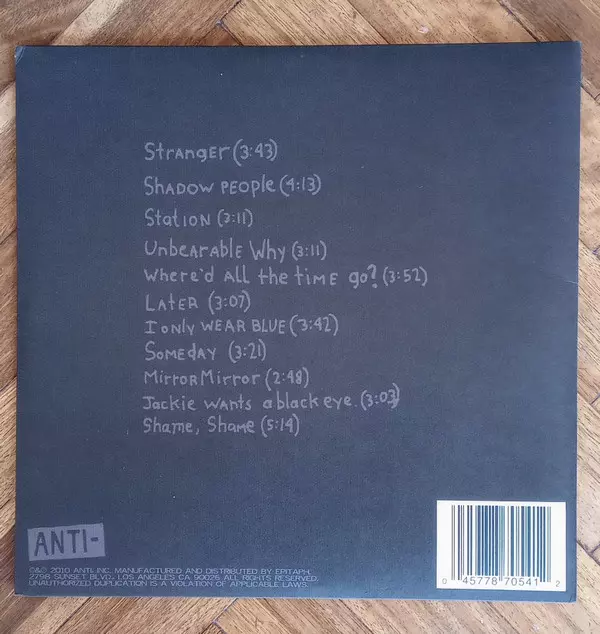 Stranger (3:43)
Shadow People (4:13)
Station (3:11)
Unbearable Why (3:11)
Where'd all the time go? (3:52)
Later (3:07)
I only wear blue (3:42)
Someday (3:21)
Mirror Mirror (2:48)
Jackie wants a black eye. (3:03)
Shame, Shame (5:14)
ANTI-
©&℗ 2010 ANTI, INC. MANUFACTURED AND DISTRIBUTED BY EPITAPH.
2798 SUNSET BLVD. LOS ANGELES CA 90026 ALL RIGHTS RESERVED.
UNAUTHORIZED DUPLICATION IS A VIOLATION OF APPLICABLE LAWS.
0 45778 70541 2